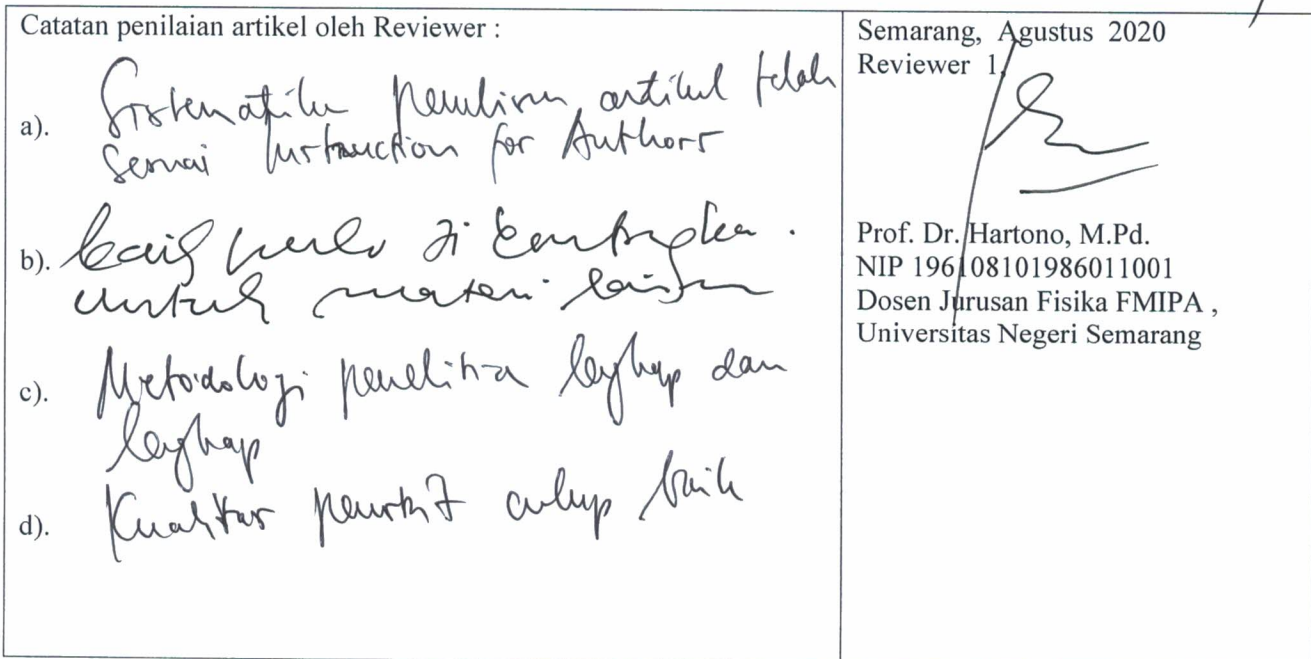 Catatan penilaian artikel oleh Reviewer :
a). Sistematika penulisan artikel telah
sesuai Instruction for Authors
b). baik perlu di kembangkan.
untuk materi lain
c). Metodologi penelitian lengkap dan
lengkap
d). Kualitas penerbit cukup baik
Semarang, Agustus 2020
Reviewer 1,
Prof. Dr. Hartono, M.Pd.
NIP 196108101986011001
Dosen Jurusan Fisika FMIPA ,
Universitas Negeri Semarang